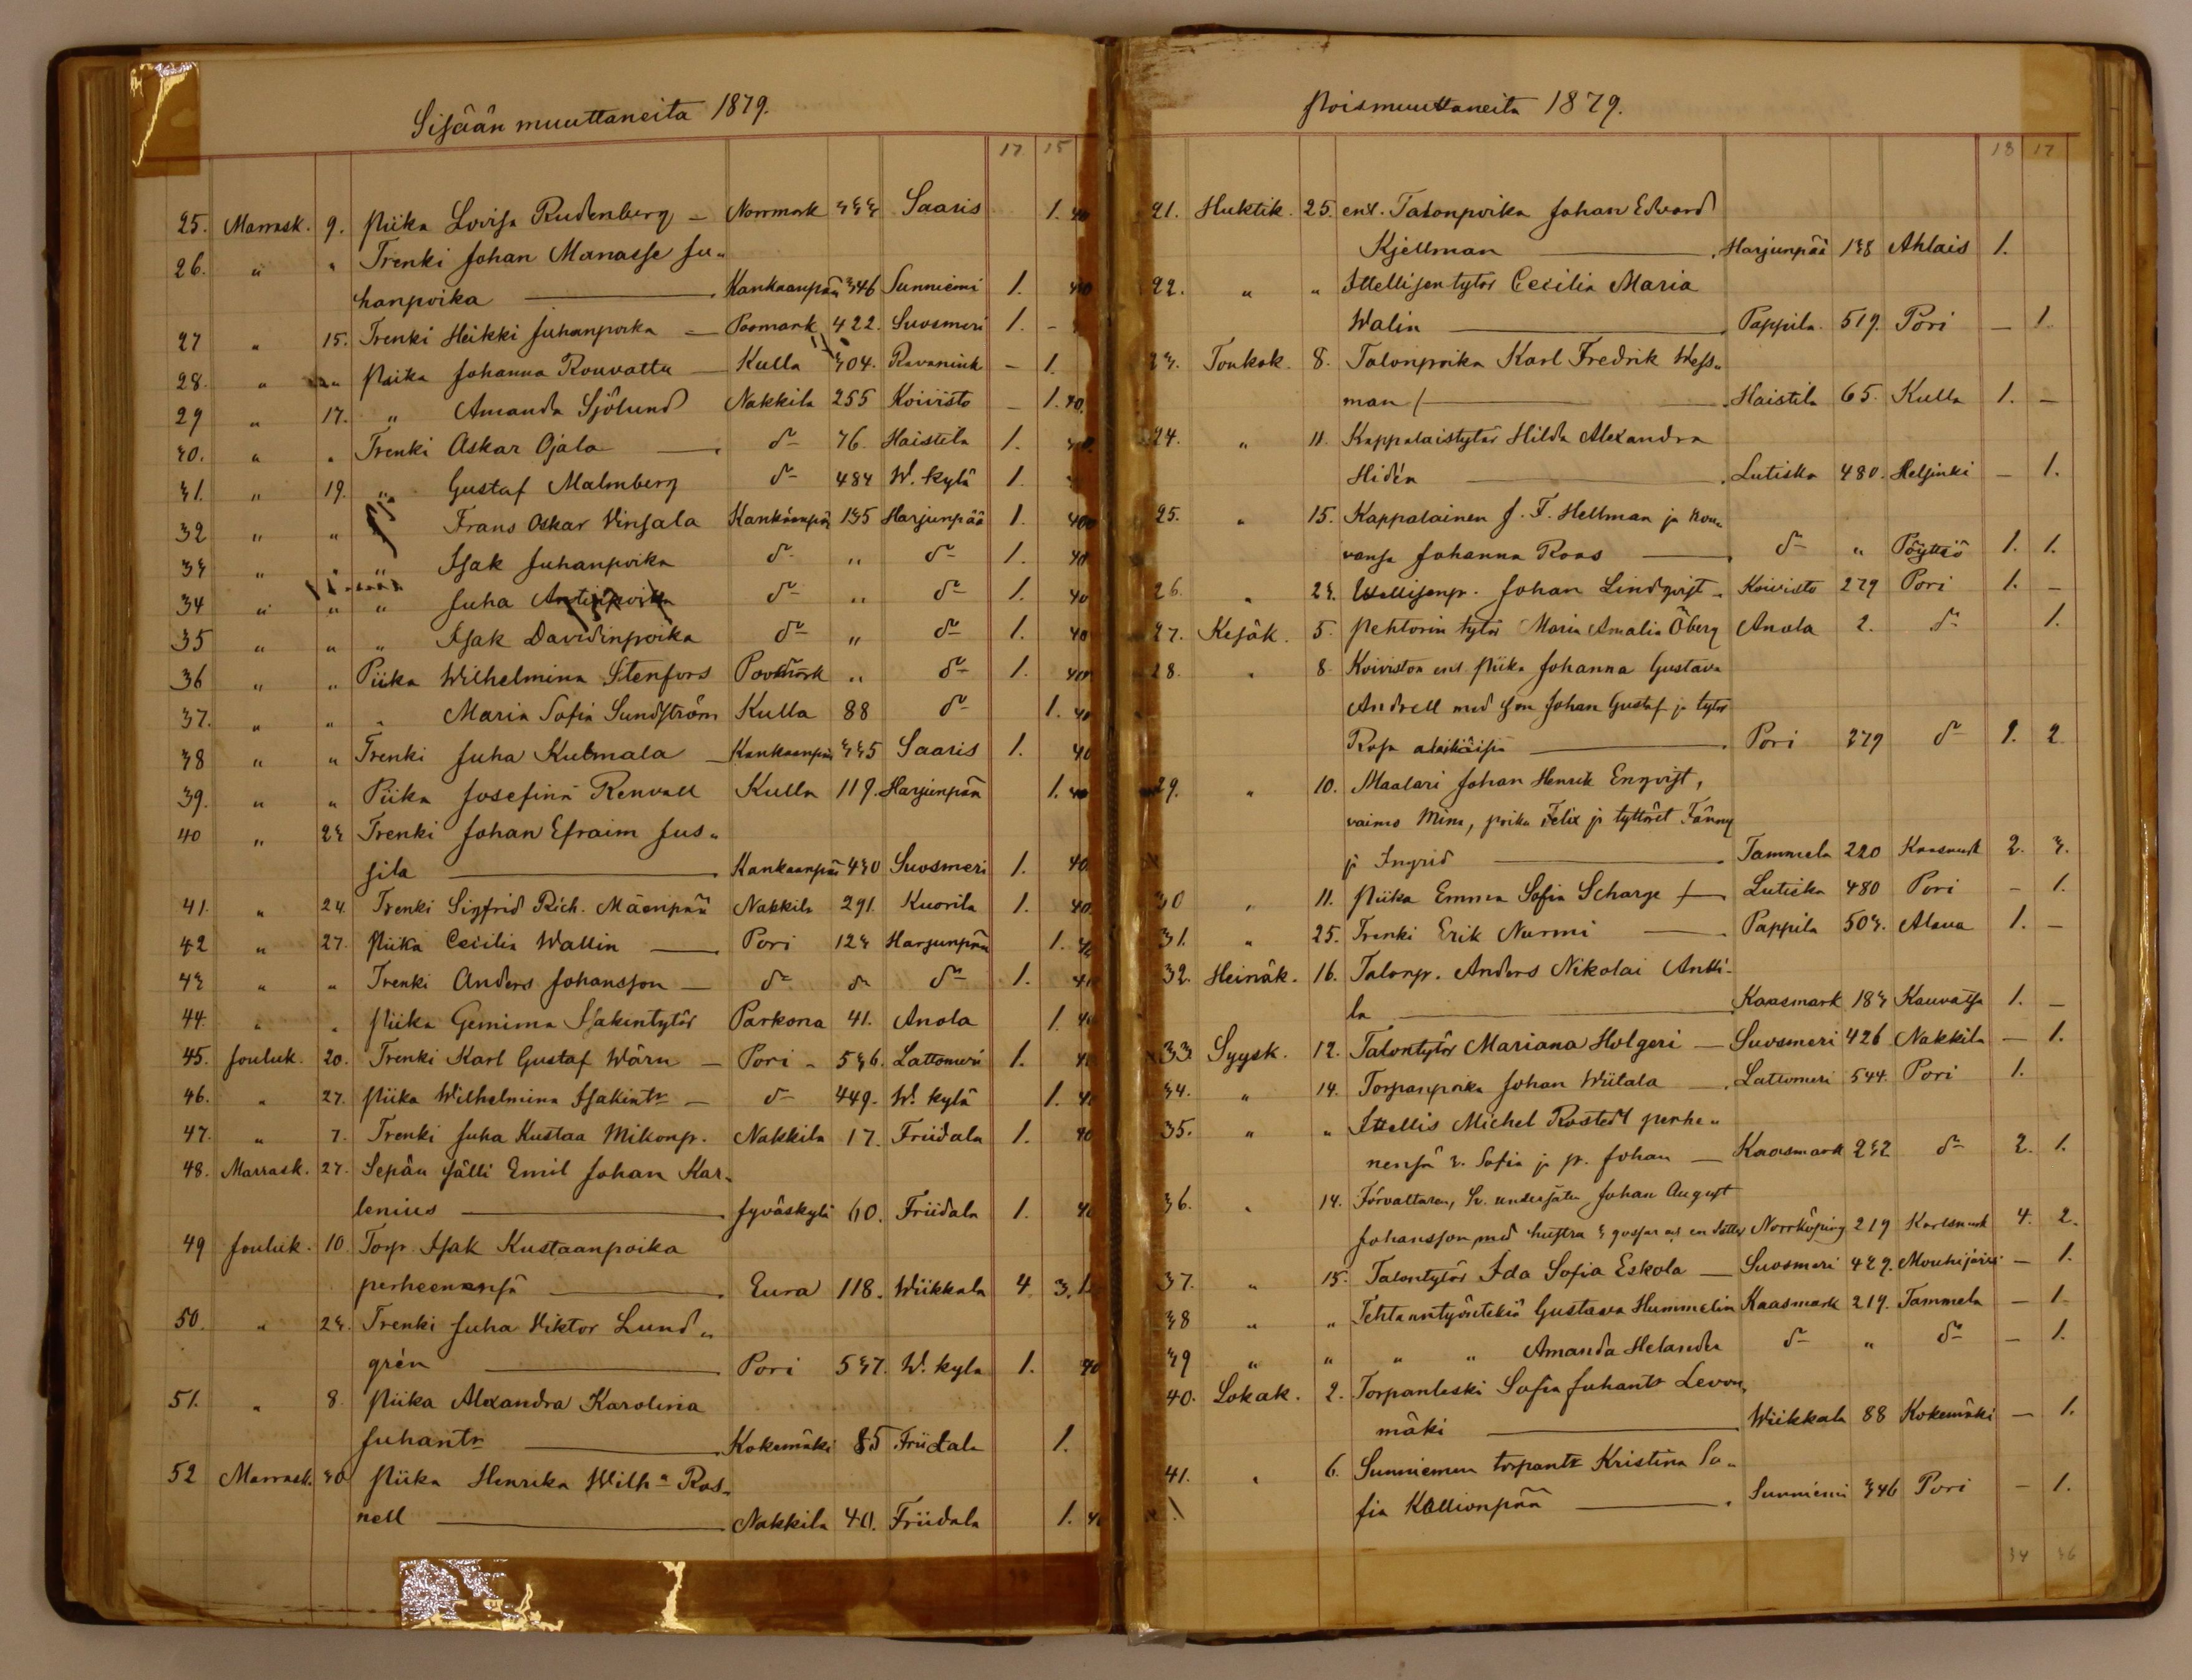 Sisään muuttaneita 1879.
17 15
25. Marrask. 9. Piika Lovisa Rudenberg — Norrmark 333 Saaris 1. 40
26. " " Trenki Johan Manasse Ju-
hanpoika — Kankaanpää 346 Sunniemi 1. 40
27 " 15. Trenki Heikki Juhanpoika — Poomark 422. Suosmeri 1. -
28. " " Piika Johanna Rouvattu — Kulla 304. Ravanink - 1.
29 " 17. " Amanda Sjölund Nakkila 255 Koivisto - 1. 40.
30. " " Trenki Oskar Ojala — d:o 76. Haistila 1.
31. " 19. " Gustaf Malmberg d:o 484 W. kylä 1.
32 " " Frans Oskar Vinsala Kankaanpää 135 Harjunpää 1. 40
33 " " " Isak Juhanpoika d:o " d:o 1. 40
34 " " " Juha Antinpoika d:o " d:o 1. 40
35 " " " Isak Davidinpoika d:o " d:o 1. 40
36 " " Piika Wilhelmina Stenfors Poomark " d:o 1. 40
37. " " " Maria Sofia Sundström Kulla 88 d:o 1. 40
38 " " Trenki Juha Kulmala — Kankaanpää 335 Saaris 1. 40
39. " " Piika Josefina Renvall Kulla 119. Harjunpää 1. 40
40 " 23 Trenki Johan Efraim Jus-
sila — Kankaanpää 430 Suosmeri 1. 40
41. " 24. Trenki Sigfrid Rich. Mäenpää Nakkila 291. Kuorila 1. 40
42 " 27. Piika Cecilia Wallin — Pori 123 Harjunpää 1. 40
43 " " Trenki Anders Johansson — d:o d:o d:o 1. 40
44. " " Piika Gemima Isakintytär Parkona 41. Anola 1. 40
45. Jouluk. 20. Trenki Karl Gustaf Wärn — Pori - 536. Lattomeri 1. 40
46. " 27. Piika Wilhelmina Isakintr — d:o 449. W. kylä 1. 40
47. " 7. Trenki Juha Kustaa Mikonp. Nakkila 17. Friidala 1. 40
48. Marrask. 27. Sepän sälli Emil Johan Kar-
lenius — Jyväskylä 60. Friidala 1. 40
49 Jouluk. 10. Torp. Isak Kustaanpoika
perheenensä — Eura 118. Wiikkala 4 3.
50. " 23. Trenki Juha Viktor Lund-
grén — Pori 537. W. kyla 1. 40
51. " 8. Piika Alexandra Karolina
Juhantr — Kokemäki 85 Friidala 1.
52 Marrask. 30 Piika Henrika Wilh:a Ros-
nell — Nakkila 40. Friidala 1. 40
Poismuuttaneita 1879.
18 17
21. Huhtik. 25. ent. Talonpoika Johan Edvard
Kjellman — Harjunpää 138 Ahlais 1.
22. " " Ittellisen tytär Cecilia Maria
Walin — Pappila. 519. Pori — 1.
23. Toukok. 8. Talonpoika Karl Fredrik Wess-
man — Haistila 65. Kulla 1. —
24. " 11. Kappalaistytär Hilda Alexandra
Hidén — Lutiska 480. Helsinki — 1.
25. " 15. Kappalainen J. F. Hellman ja Rou-
vansa Johanna Roos — d:o " Pöyttiö 1. 1.
26. " 23. Ittellisenp. Johan Lindqvist - Koivisto 279 Pori 1. —
27. Kesäk. 5. Pehtorin tytär Maria Amalia Öberg Anola 2. d:o 1.
28. " 8. Koiviston ent Piika Johanna Gustava
Andrell med son Johan Gustaf ja tytär
Rosa — Pori 279 d:o 1. 2
29. " 10. Maalari Johan Henrik Enqvist,
vaimo Mina, poika Felix ja tyttäret Fanny
ja Ingrid — Tammela 220 Kaasmark 2. 3.
30 " 11. Piika Emma Sofia Scharge — Lutiska 480 Pori - 1.
31. " 25. Trenki Erik Nurmi — Pappila 503. Alaua 1. —
32. Heinäk. 16. Talonp. Anders Nikolai Antti-
la — Kaasmark 183 Kauvatsa 1. —
33 Syysk. 12. Talontytär Mariana Holgeri — Suosmeri 426 Nakkila — 1.
34. " 14. Torpanpoika Johan Wiitala — Lattomeri 544. Pori 1.
35. " " Ittellis Michel Rostedt perhe-
nensä v. Sofia ja p. Johan — Kaasmark 232 d:o 2. 1.
36. " 14. Förvaltaren, Sv. undersåten Johan August
Johansson med hustru 3 gossar och en dotter Norrköping 219 Karlsmark 4. 2.
37. " 15. Talontytär Ida Sofia Eskola — Suosmeri 429. Mouhijärvi — 1.
38 " " Tehtaantyöntekiä Gustava Hummelin Kaasmark 219. Tammela — 1
39 " " " " Amanda Helander d:o " d:o — 1.
40. Lokak. 2. Torpanleski Sofia Juhantr Levon-
mäki — Wiikkala 88 Kokemäki — 1.
41. " 6. Sunniemen torpantr Kristina So-
fia Kallionpää — Sunniemi 346 Pori — 1.
34 36